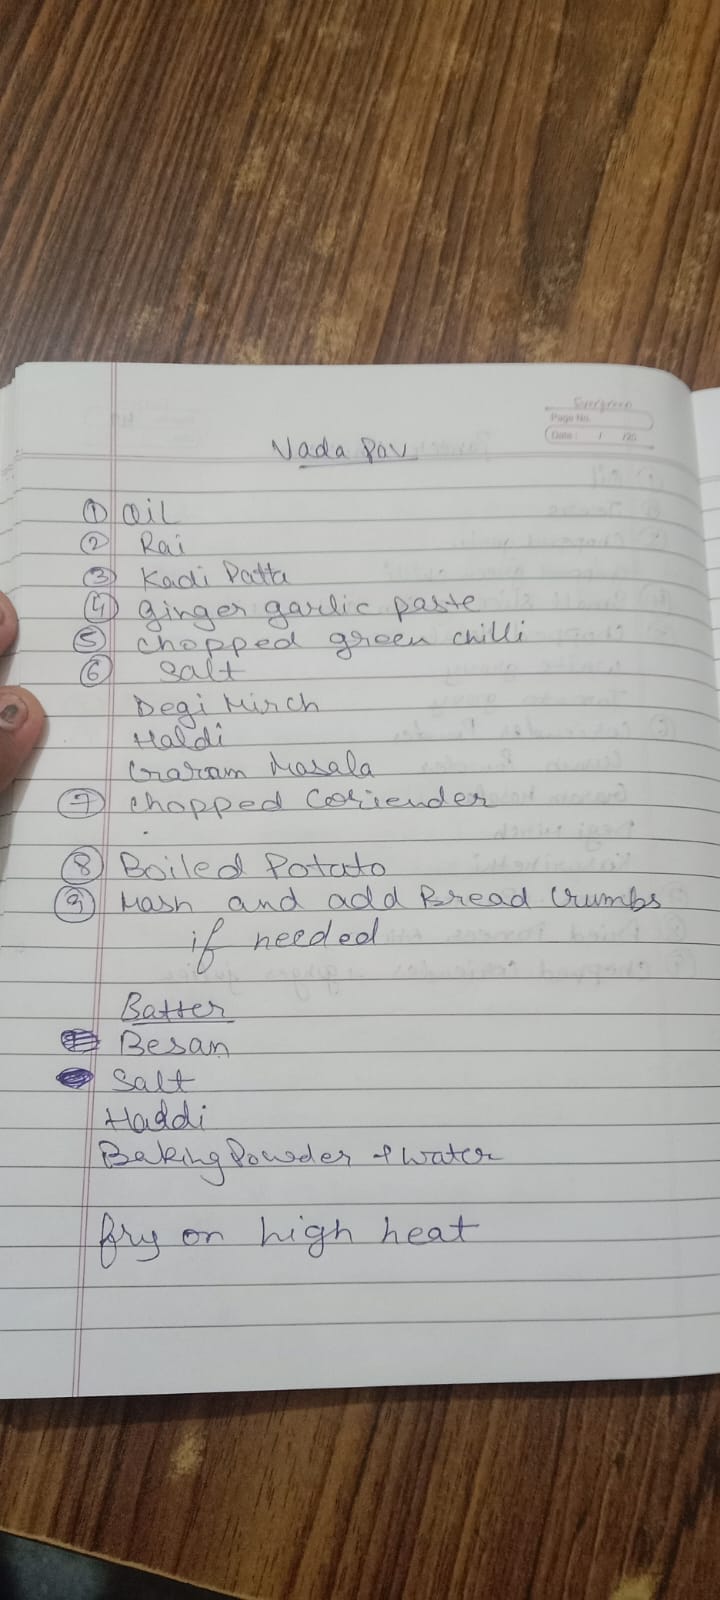 Evergreen
Page No.
Date : / /20
Vada Pav
① Oil
② Rai
③ Kadi Patta
④ ginger garlic paste
⑤ chopped green chilli
⑥ Salt
Degi Mirch
Haldi
Garam Masala
⑦ chopped Coriender
⑧ Boiled Potato
⑨ Mash and add Bread Crumbs
if needed
Batter
Besan
Salt
Haldi
Baking Powder + water
fry on high heat